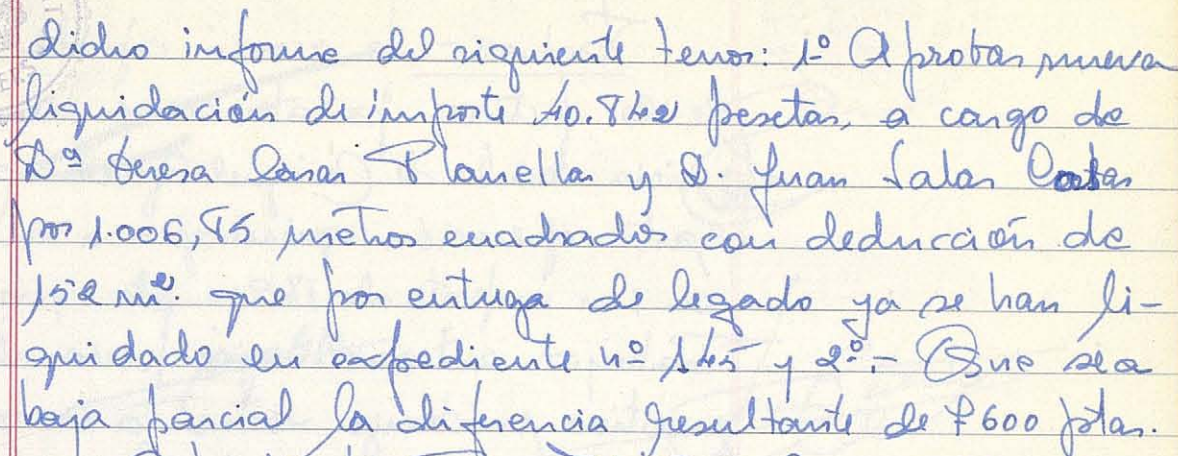 dicho informe del siguiente tenor: 1º Aprobar nueva
liquidación de importe 40.842 pesetas, a cargo de
Dª Teresa Casas Planellas y D. Juan Salas Costas
por 1.006,85 metros cuadrados con deducción de
152 m². que por entrega de legado ya se han li-
quidado en expediente nº 145 y 2º.- Que sea
baja parcial la diferencia resultante de 7600 ptas.